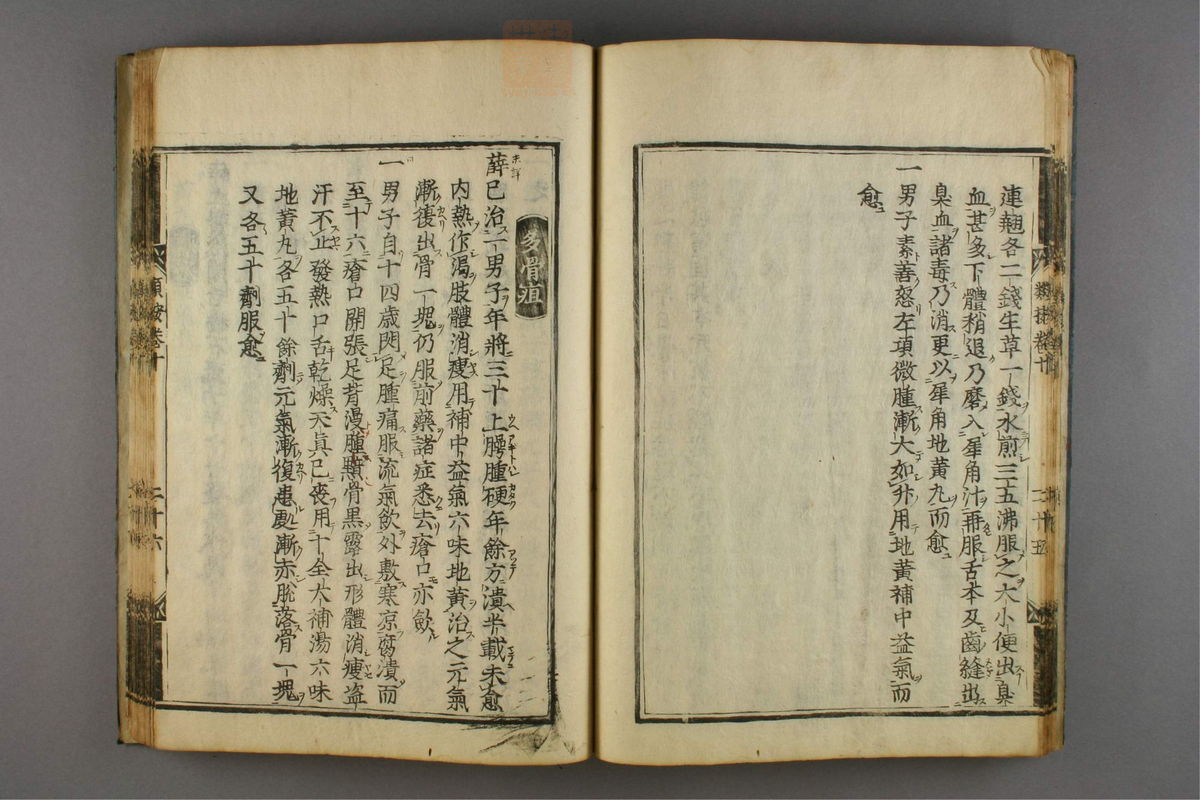 連翹各二錢生草一錢水煎三五沸服之大小便出臭
血甚多下體稍退乃磨入犀角汁再服舌本及齒縫出
臭血諸毒乃消更以犀角地黄丸而愈
一男子素善怒左項微腫漸大如升用地黄補中益氣而
愈
二十五
多骨疽
薛已治一男子年將三十上腭腫硬年餘方潰半載未愈
内熱作渴肢體消瘦用補中益氣六味地黄治之元氣
漸復出骨一塊仍服前藥諸症悉去瘡口亦斂
一男子自十四歳閃足腫痛服流氣飲外敷寒凉腐潰而
至十六瘡口開張足背漫腫黯骨黒露出形體消瘦盗
汗不止發熱口舌乾燥天眞已喪用十全大補湯六味
地黄丸各五十餘劑元氣漸復患處漸赤脫落骨一塊
又各五十劑服愈
類按卷十
二十六